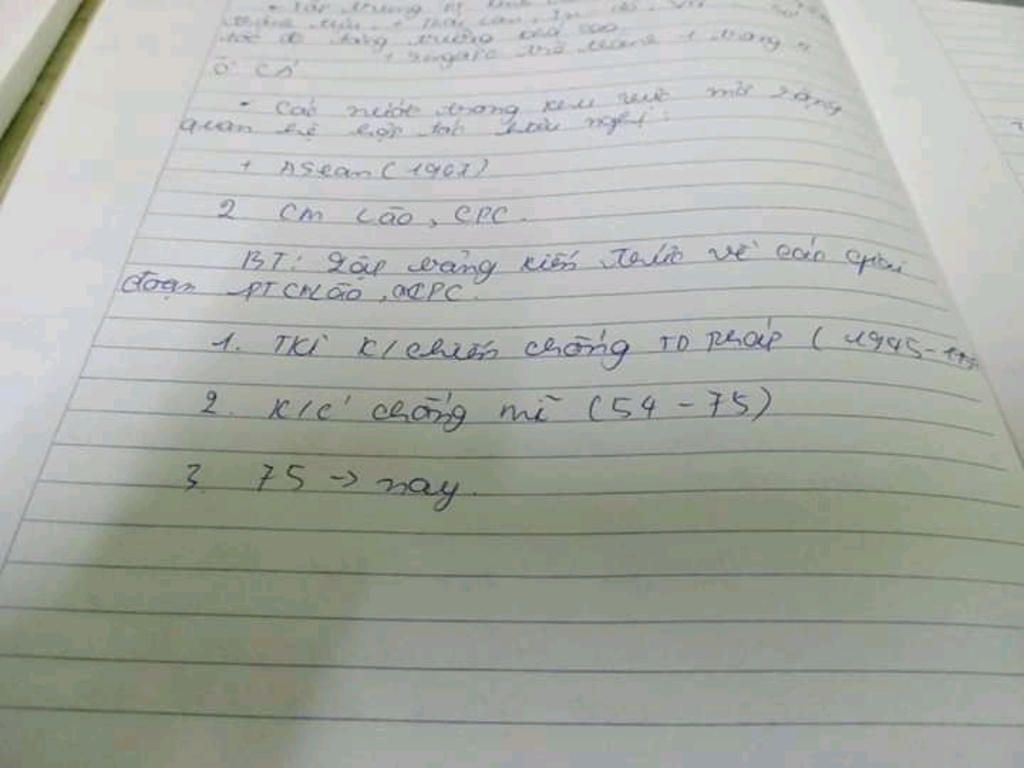 tốc độ tăng trưởng khá cao
ở CA
- Các nước trong khu vực mở rộng
quan hệ hợp tác hữu nghị:
+ ASean (1967)
2 CM Lào, CPC.
BT: Lập bảng kiến thức về các giai
đoạn PTCM Lào, CPC.
1. TKì K/chiến chống TD Pháp (1945-
2. K/c chống mĩ (54 - 75)
3 75 → nay.